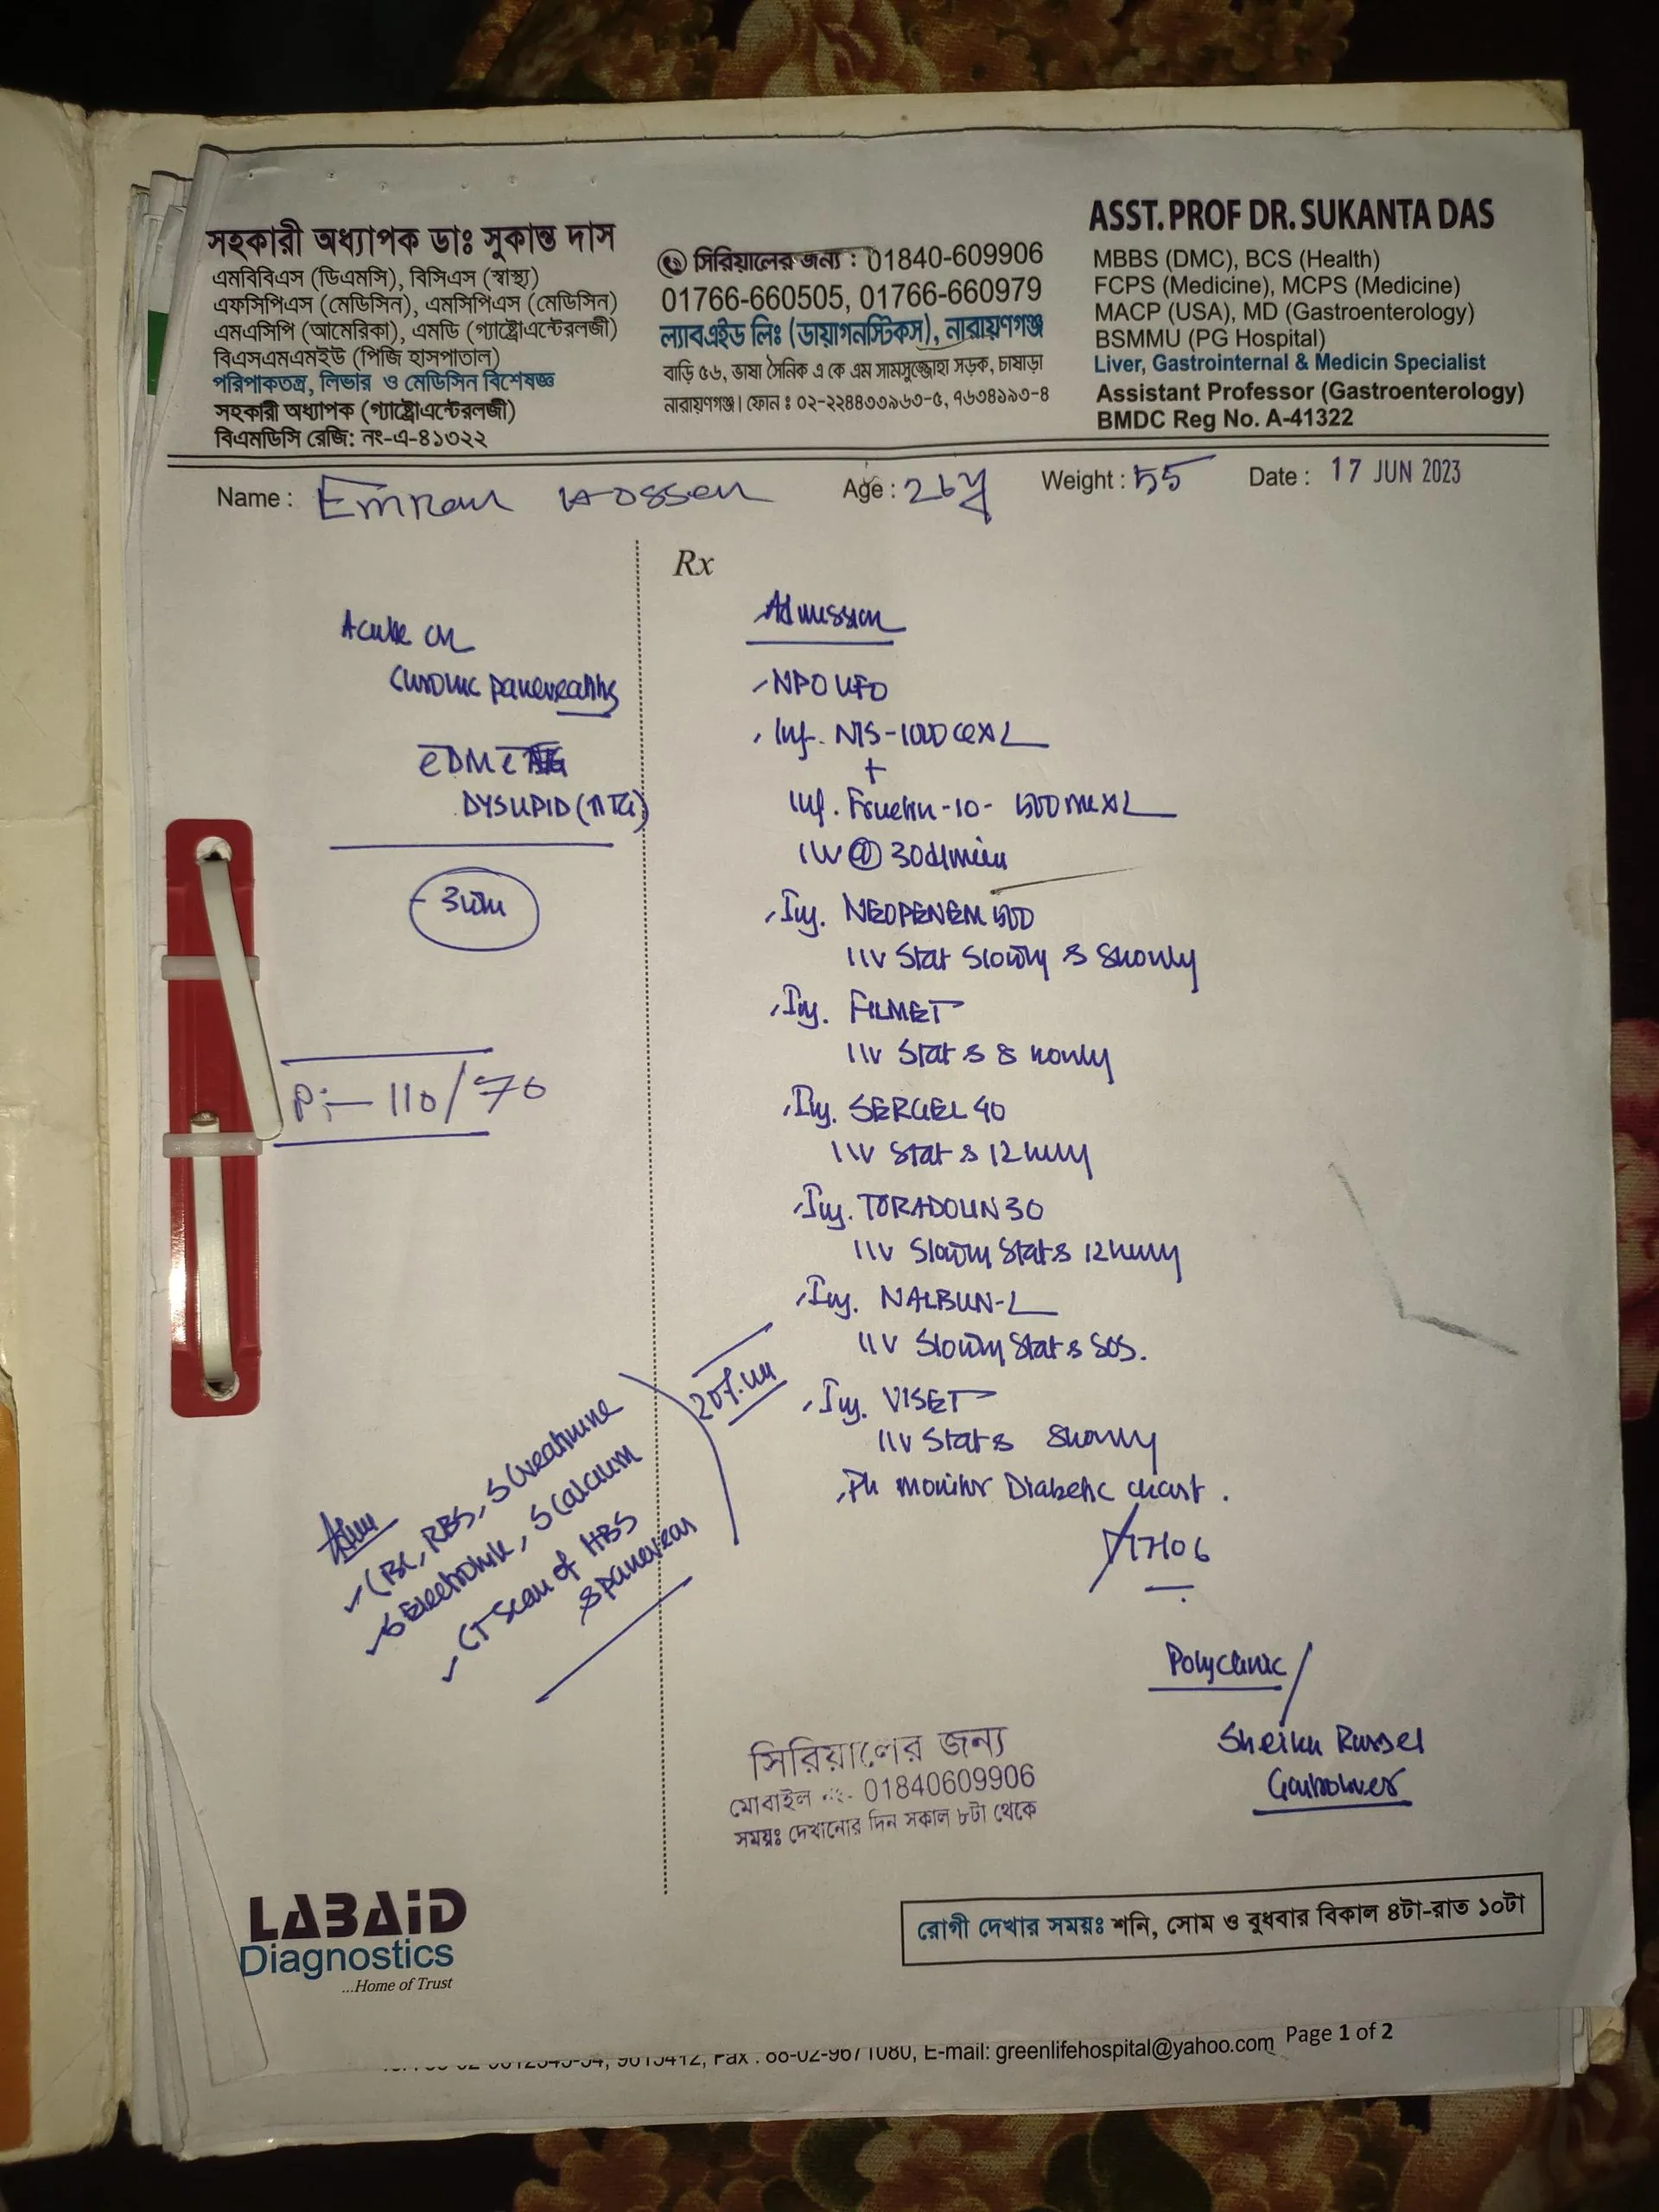 সহকারী অধ্যাপক ডাঃ সুকান্ত দাস
এমবিবিএস (ডিএমসি), বিসিএস (স্বাস্থ্য)
এফসিপিএস (মেডিসিন), এমসিপিএস (মেডিসিন)
এমএসিপি (আমেরিকা), এমডি (গ্যাষ্ট্রোএন্টেরলজী)
বিএসএমএমইউ (পিজি হাসপাতাল)
পরিপাকতন্ত্র, লিভার ও মেডিসিন বিশেষজ্ঞ
সহকারী অধ্যাপক (গ্যাষ্ট্রোএন্টেরলজী)
বিএমডিসি রেজি: নং-এ-৪১৩২২
সিরিয়ালের জন্য : 01840-609906
01766-660505, 01766-660979
ল্যাবএইড লিঃ (ডায়াগনস্টিকস), নারায়ণগঞ্জ
বাড়ি ৫৬, ভাষা সৈনিক এ কে এম সামসুজ্জোহা সড়ক, চাষাড়া
নারায়ণগঞ্জ। ফোন ঃ ০২-২২৪৪৩৩৯৬৩-৫, ৭৬৩৪১৯৩-৪
ASST. PROF DR. SUKANTA DAS
MBBS (DMC), BCS (Health)
FCPS (Medicine), MCPS (Medicine)
MACP (USA), MD (Gastroenterology)
BSMMU (PG Hospital)
Liver, Gastrointernal & Medicin Specialist
Assistant Professor (Gastroenterology)
BMDC Reg No. A-41322
Name : Emran Hossen Age : 26y Weight : 55 Date : 17 JUN 2023
Acute on
Chronic pancreatitis
DM
DYSLIPID (↑↑TG)
P:- 110/70
CBC, RBS, S Creatinine
S Electrolyte, S Calcium
CT Scan of HBS
& pancreas
Rx
Admission
NPO UFO
Inf. N/S-1000
+
Inf. 500ml
IV @ 30d/min
Inj. NEOPENEM 500
1 IV Stat Slowly & 8 hourly
Inj. FILMET
1 IV Stat & 8 hourly
Inj. SERGEL 40
1 IV Stat & 12 hrly
Inj. TORADOLIN 30
1 IV Slowly Stat & 12 hrly
Inj. NALBUN-2
1 IV Slowly Stat & SOS.
Inj. VISET
1 IV Stat & 8 hourly
Pls monitor Diabetic chart.
Polyclinic/
Sheikh Russel
সিরিয়ালের জন্য
মোবাইল নং- 01840609906
সময়ঃ দেখানোর দিন সকাল ৮টা থেকে
LABAID
Diagnostics
...Home of Trust
রোগী দেখার সময়ঃ শনি, সোম ও বুধবার বিকাল ৪টা-রাত ১০টা
Fax : 88-02-9671080, E-mail: greenlifehospital@yahoo.com Page 1 of 2